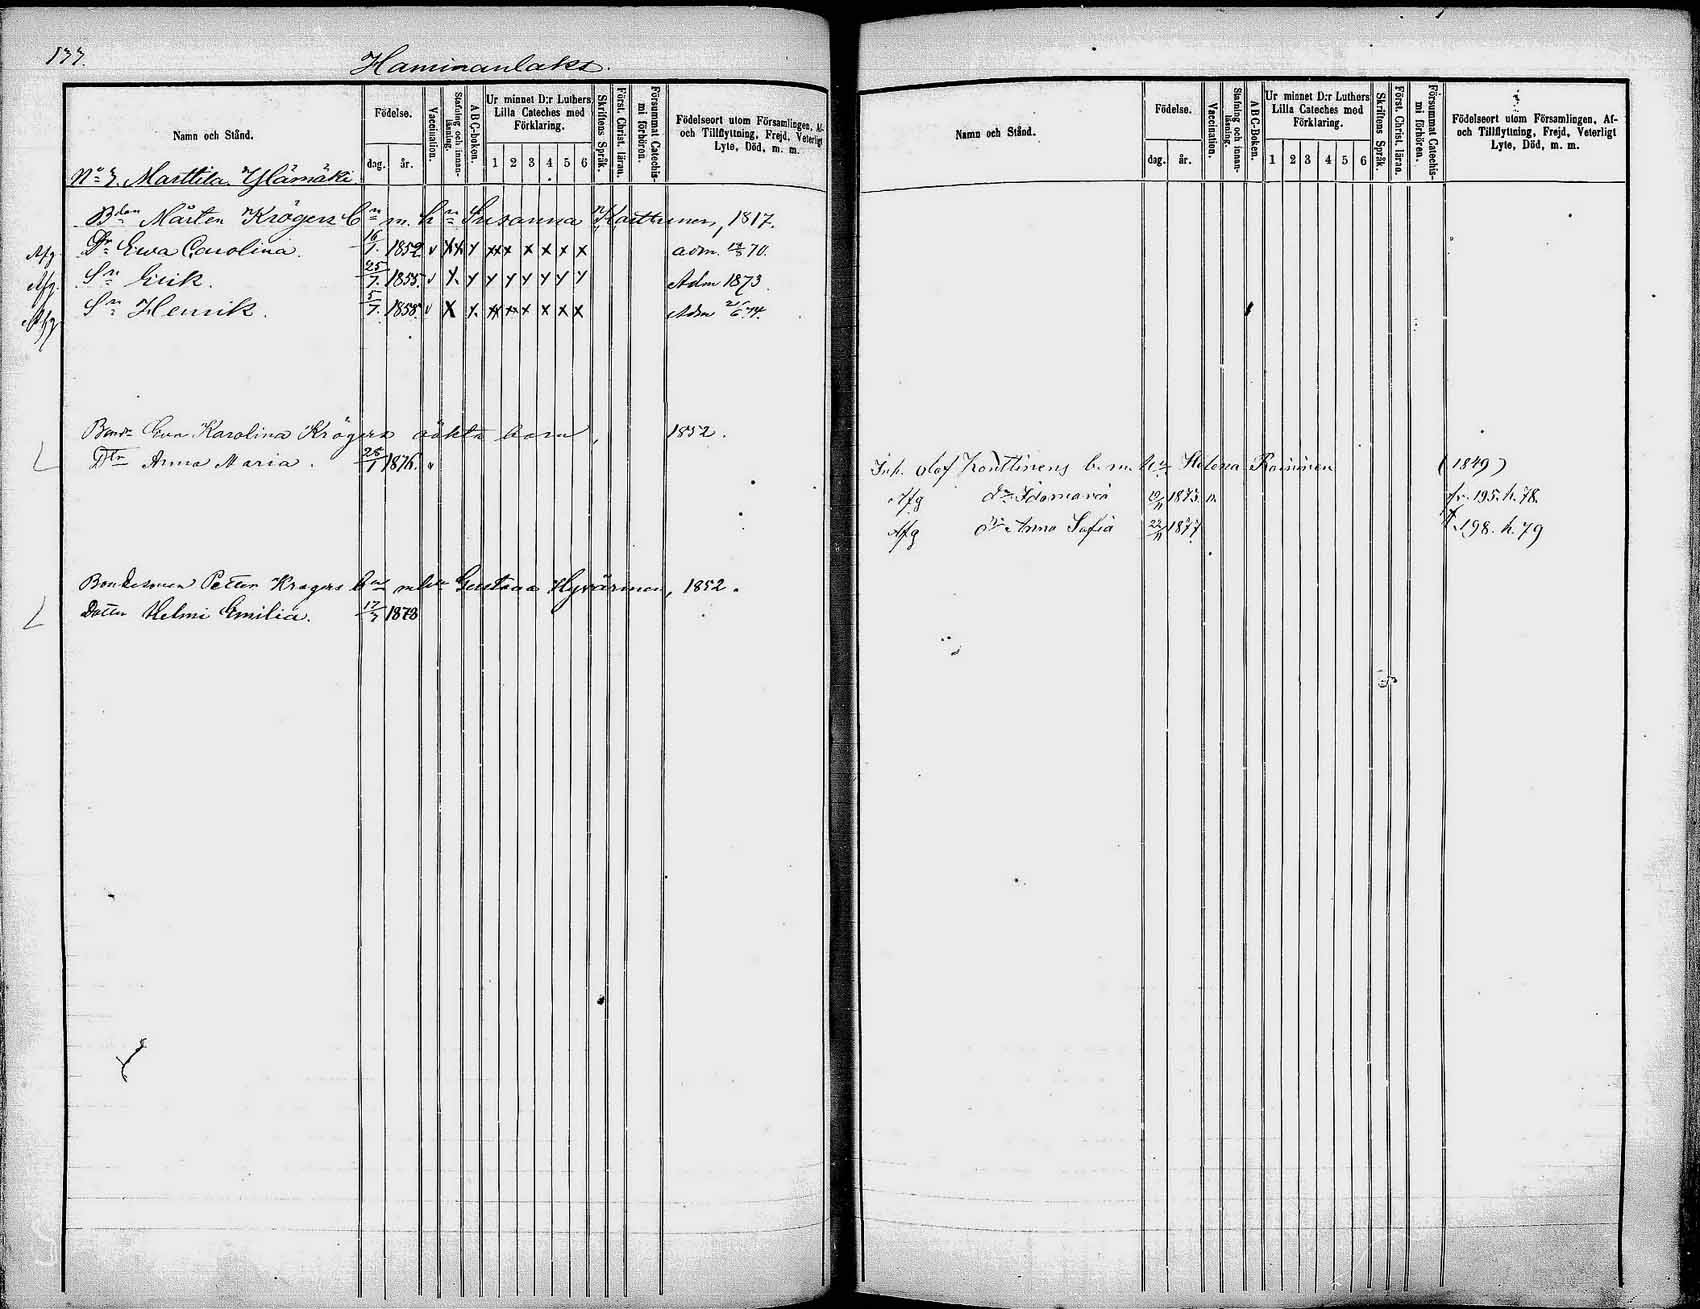 133.
Haminanlaks.
Namn och Stånd.
Födelse.
dag.
år.
Vaccination.
Stafning och innan-läsning.
ABC-boken.
Ur minnet D:r Luthers Lilla Cateches med Förklaring.
1 2 3 4 5 6
Skriftens Språk.
Först. Christ. läran.
Försummat Catechis-mi förhören.
Födelseort utom Församlingen, Af- och Tillflyttning, Frejd, Veterligt Lyte, Död, m. m.
Marttila Ylämäki
Bdan Mårten Krögers bn m. hn Susanna Karttunen, 1817.
Afg Dr Ewa Carolina. 16/7. 1852 v x x x x x x x x adm. 70.
Afg. Sn Erik. 25/7. 1855. v x y y y y y y y Adm 1873.
Afg Sn Henrik. 5/7. 1858. v x x x x x x x x Adm 74.
Eva Karolina Krögers oäkta barn, 1852.
Dtr Anna Maria. 25/1 1876. v
Petter Krögers bn m hn Gustava Hyvärinen, 1852.
Dotter Helmi Emilia. 17/7 1878
Namn och Stånd.
Födelse.
dag.
år.
Vaccination.
Stafning och innan-läsning.
ABC-Boken.
Ur minnet D:r Luthers Lilla Cateches med Förklaring.
1 2 3 4 5 6
Skriftens Språk.
Först. Christ. läran.
Försummat Catechis-mi förhören.
Födelseort utom Församlingen, Af- och Tillflyttning, Frejd, Veterligt Lyte, Död, m. m.
Inh. Olof Konttinens b. m. hn Helena Roininen (1849)
Afg dr Idamaria 1873. v. fr. 195. h. 78.
Afg dr Anna Sofia 22/11 1877 198. h. 79